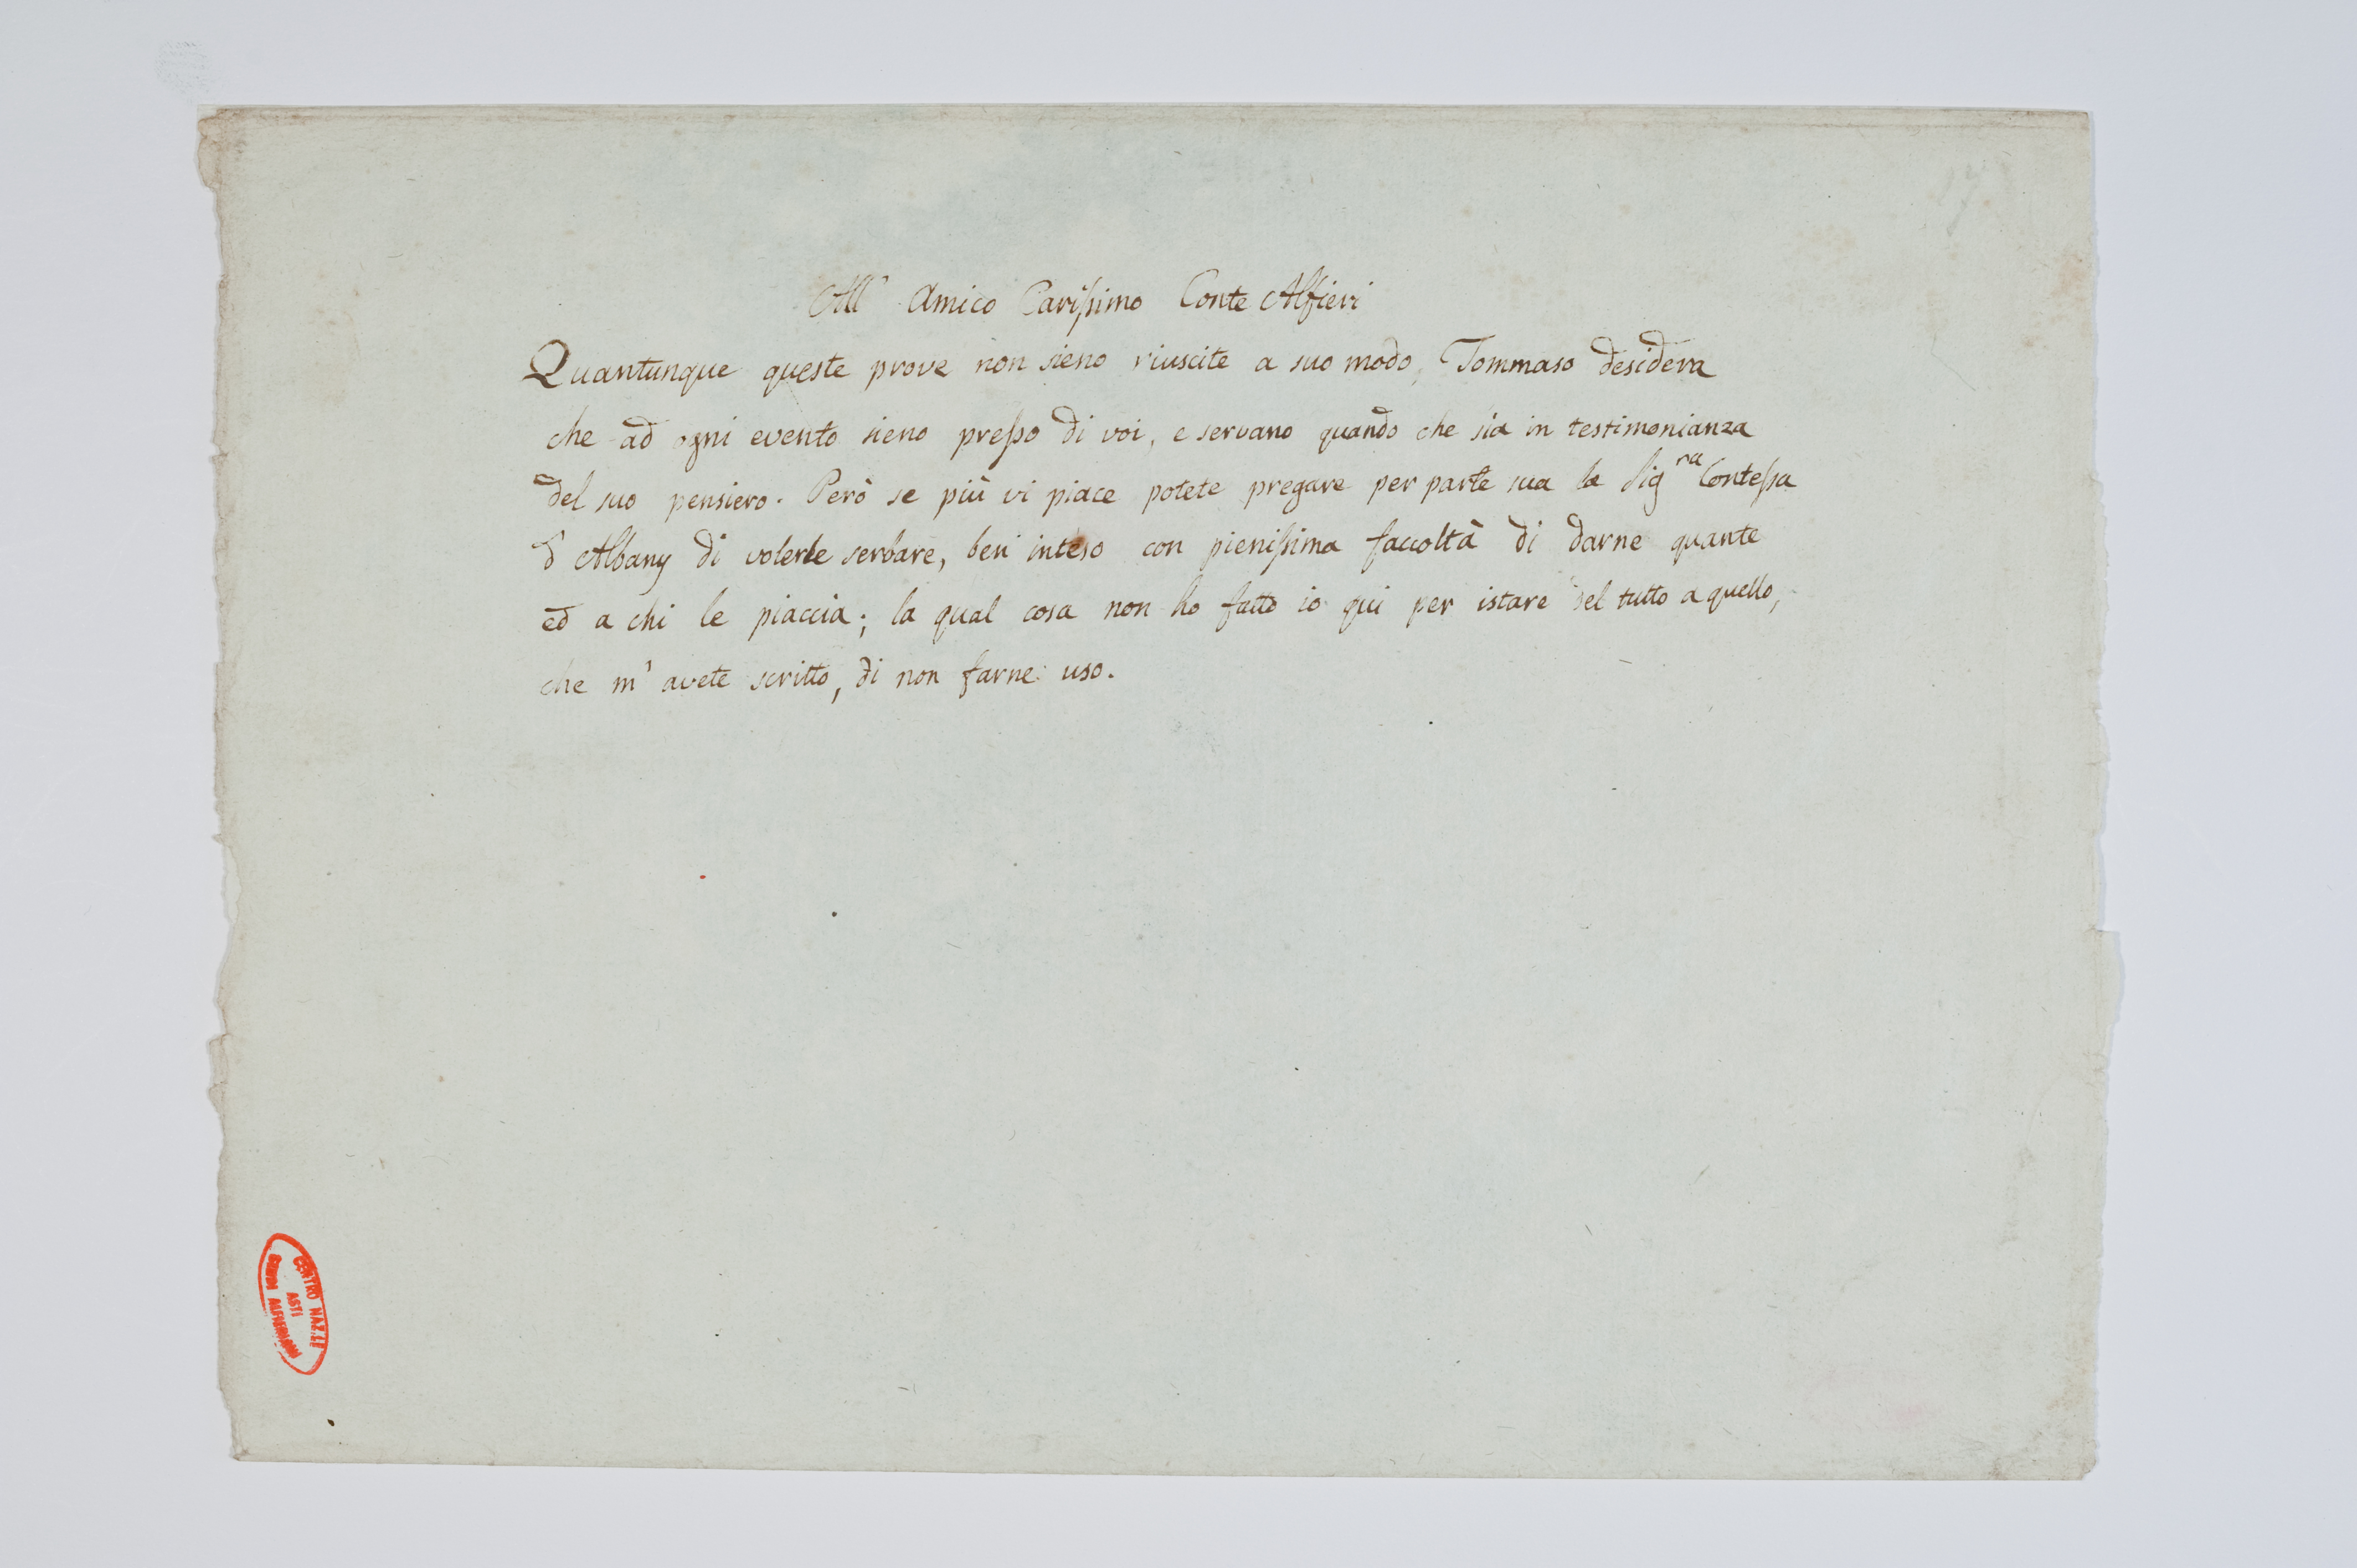 All' Amico Carissimo Conte Alfieri
Quantunque queste prove non sieno riuscite a suo modo, Tommaso desidera
che ad ogni evento sieno presso di voi, e servano quando che sia in testimonianza
del suo pensiero. Però se più vi piace potete pregare per parte sua la Sig.ra Contessa
d'Albany di volerle serbare, ben inteso con pienissima faccoltà di darne quante
ed a chi le piaccia; la qual cosa non ho fatto io qui per istare del tutto a quello,
che m'avete scritto, di non farne uso.
CENTRO NAZ.LE
ASTI
STUDI ALFIERIANI